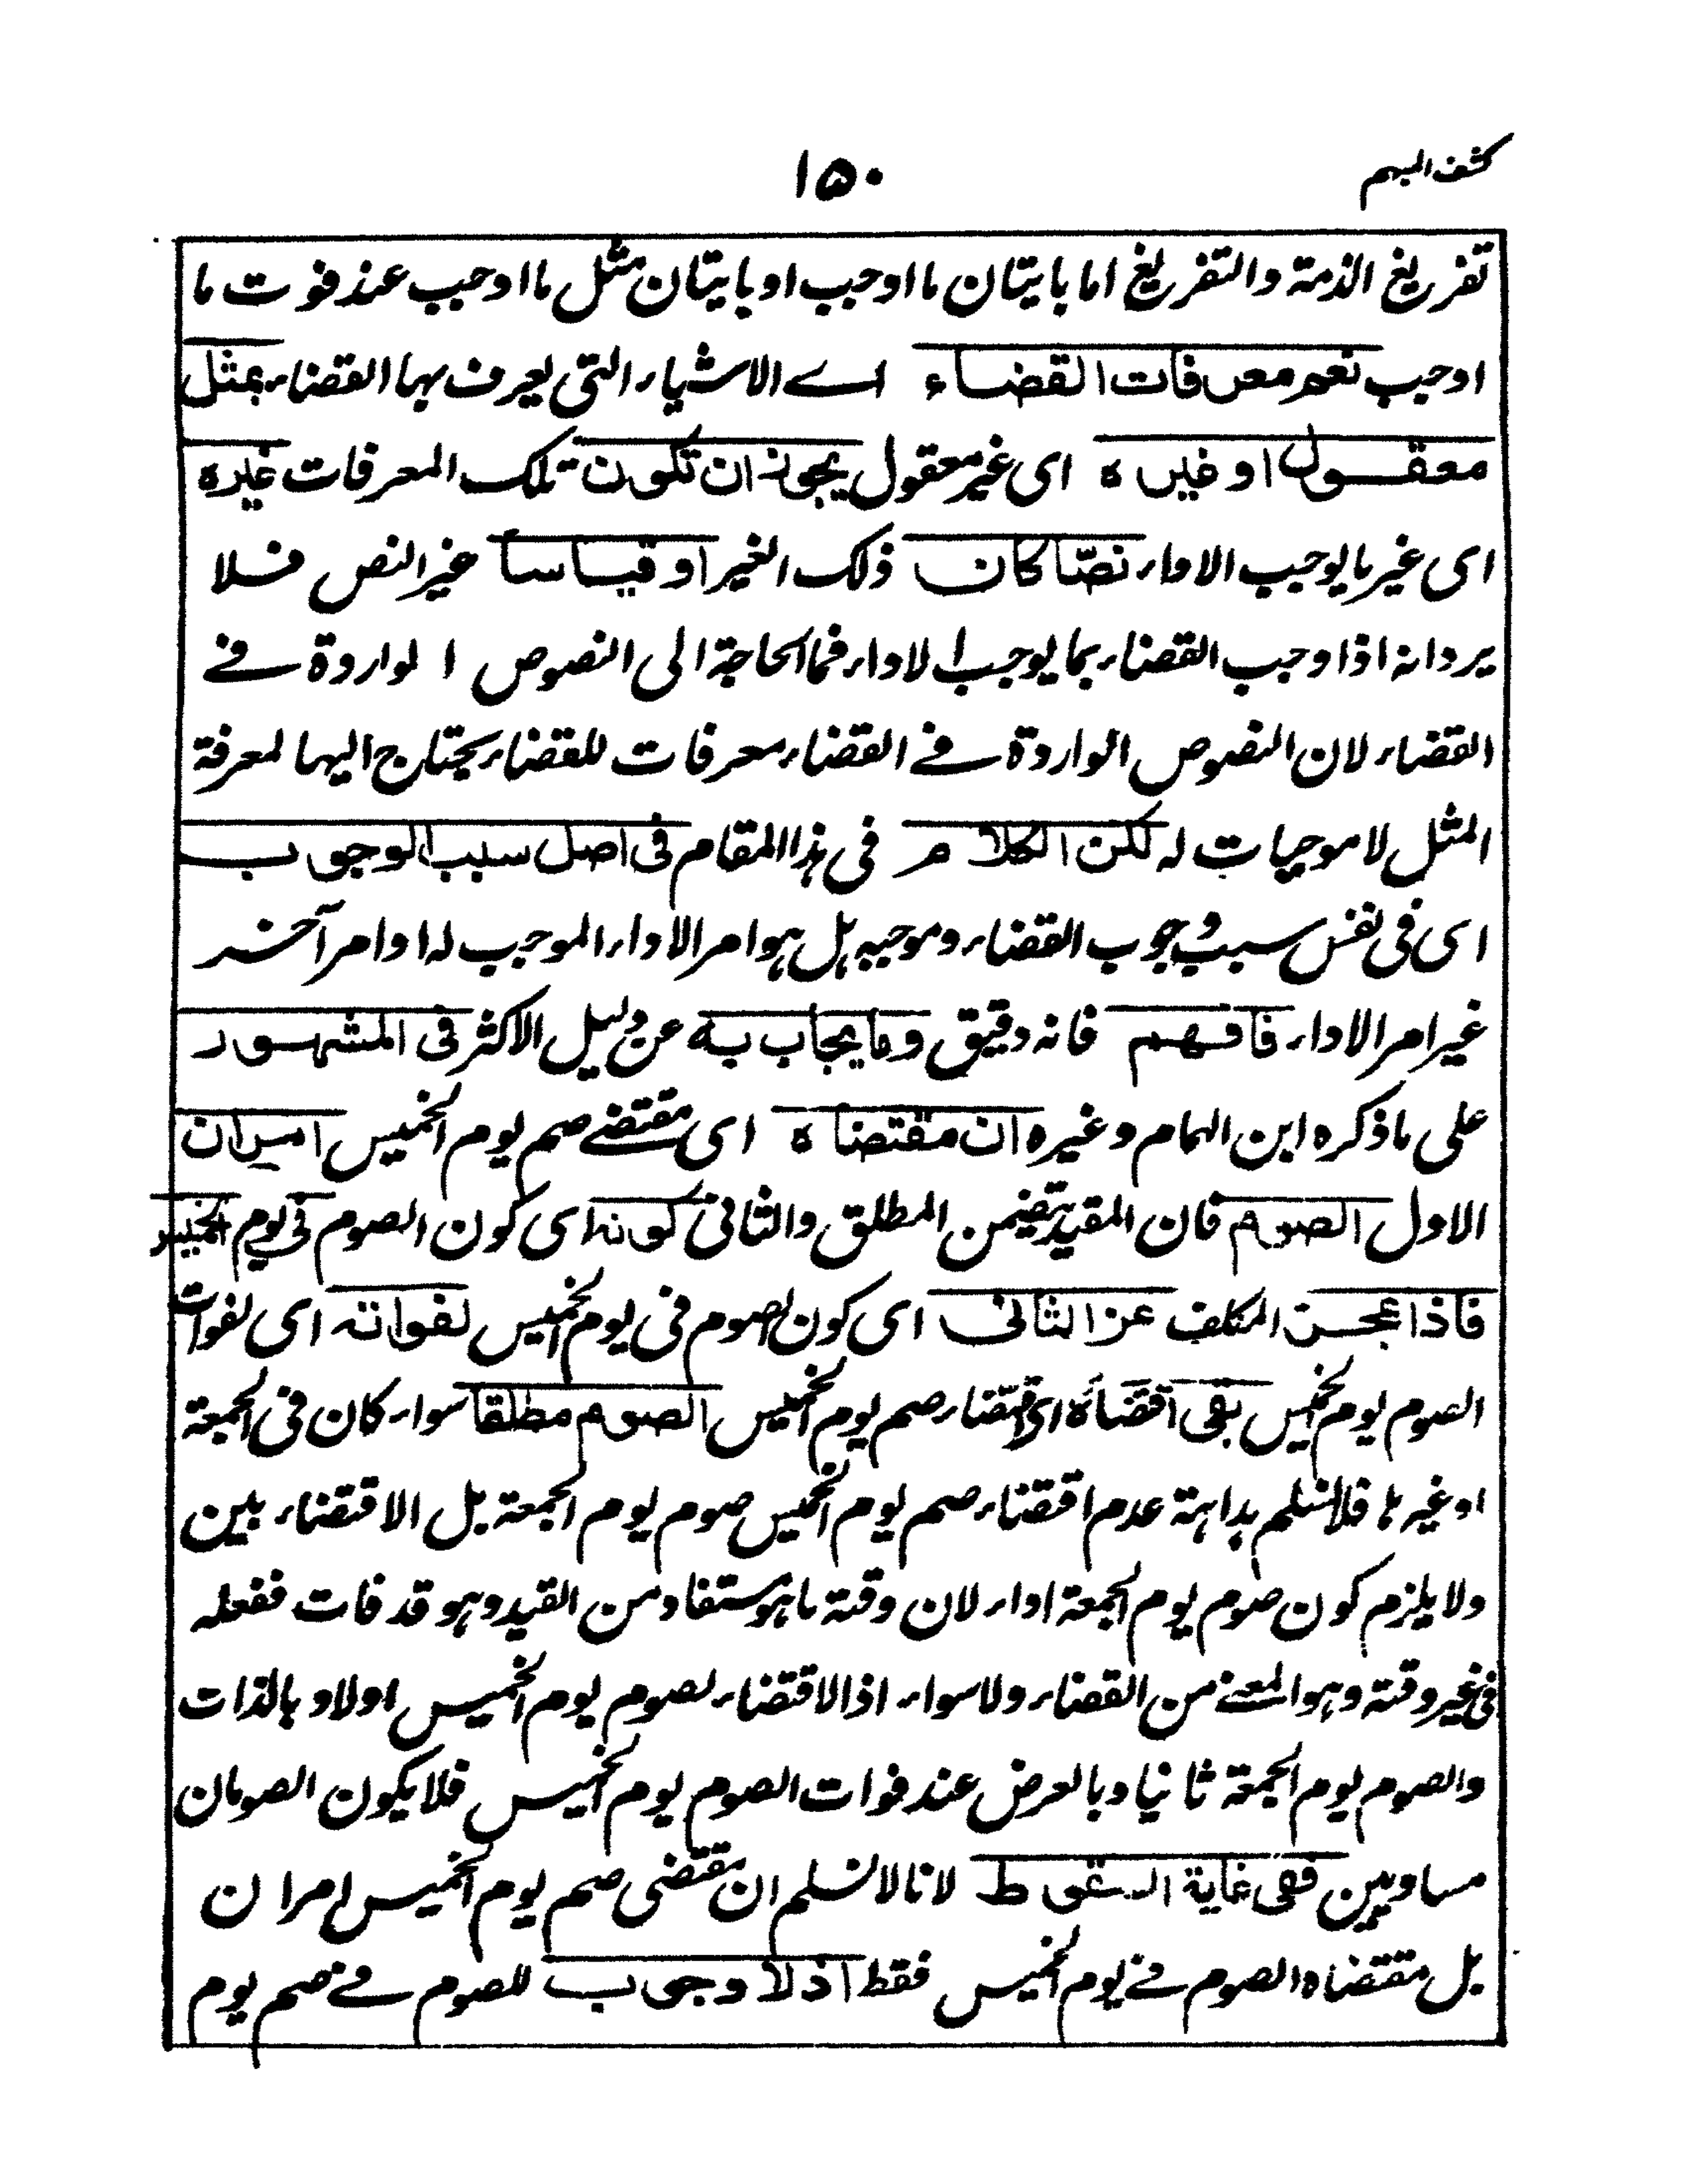 كشف المبهم
۱۵۰
تفريغ الذمة والتفريغ اما باتيان ما اوجب او باتيان مثل ما اوجب عند فوت ما
اوجب نعم معرفات القضاء اے الاشياء التى يعرف بها القضاء بمثل
معقول او غيره اى غير معقول يجوز ان تكون تلك المعرفات غيره
اى غير ما يوجب الاداء نصّا كان ذلك الغير او قياسا غير النص فلا
يرد انه اذا وجب القضاء بما يوجب الاداء فما الحاجة الى النصوص الواردة فے
القضاء لان النصوص الواردة فے القضاء معرفات للقضاء يحتاج اليها لمعرفة
المثل لا موجبات له لكن الكلام فى هذا المقام فى اصل سبب الوجوب
اى فى نفس سبب وجوب القضاء وموجبه بل هو امر الاداء الموجب له او امر آخر
غير امر الاداء فافهم فانه دقيق وما يجاب به عن دليل الاكثر فى المشهور
على ما ذكره ابن الهمام وغيره ان مقتضاه اى مقتضے صم يوم الخميس امران
الاول الصوم فان المقيد يتضمن المطلق والثانى كونه اى كون الصوم فى يوم الخميس
فاذا عجز المكلف عن الثانى اى كون الصوم فى يوم الخميس لفواته اى لفوات
الصوم يوم الخميس بقى اقتضاؤه اى اقتضاء صم يوم الخميس الصوم مطلقا سواء كان فى الجمعة
او غيرها فلا نسلم بداهة عدم اقتضاء صم يوم الخميس صوم يوم الجمعة بل الاقتضاء بين
ولا يلزم كون صوم يوم الجمعة اداء لان وقته ما هو مستفاد من القيد وهو قد فات ففعله
فى غير وقته وهو المعنے من القضاء ولا سواء اذ الاقتضاء لصوم يوم الخميس اولا و بالذات
والصوم يوم الجمعة ثانيا وبالعرض عند فوات الصوم يوم الخميس فلا يكون الصومان
مساويين ففى غاية السقوط لانا لا نسلم ان مقتضى صم يوم الخميس امران
بل مقتضاه الصوم فے يوم الخميس فقط اذ لا وجوب للصوم فے صم يوم